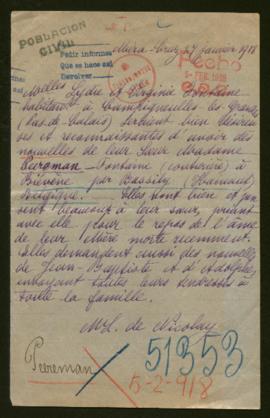 POBLACION
CIVIL
Pedir informes
Que se hace así
Devolver
17 janvier 1918
Hecho
5-FEB. 1918
Melles Lydie et Virginie Fontaine
habitant à Campigneulles les Grandes
(Pas de Calais) seraient bien désireu-
ses et reconnaissantes d'avoir des
nouvelles de leur sœur Madame
Peereman-Fontaine (couturière) à
Biévène par Bassilly (Hainaut)
Belgique. Elles vont bien et pen
sent beaucoup à leur sœur, priant
avec elle pour le repos de l'âme
de leur Mère morte récemment.
Elles demandent aussi des nouvelles
de Jean-Baptiste et d'Adolphe,
envoyant toutes leurs tendresses à
toute la famille.
M L. de Nicolay
Peereman
51353
5-2-918